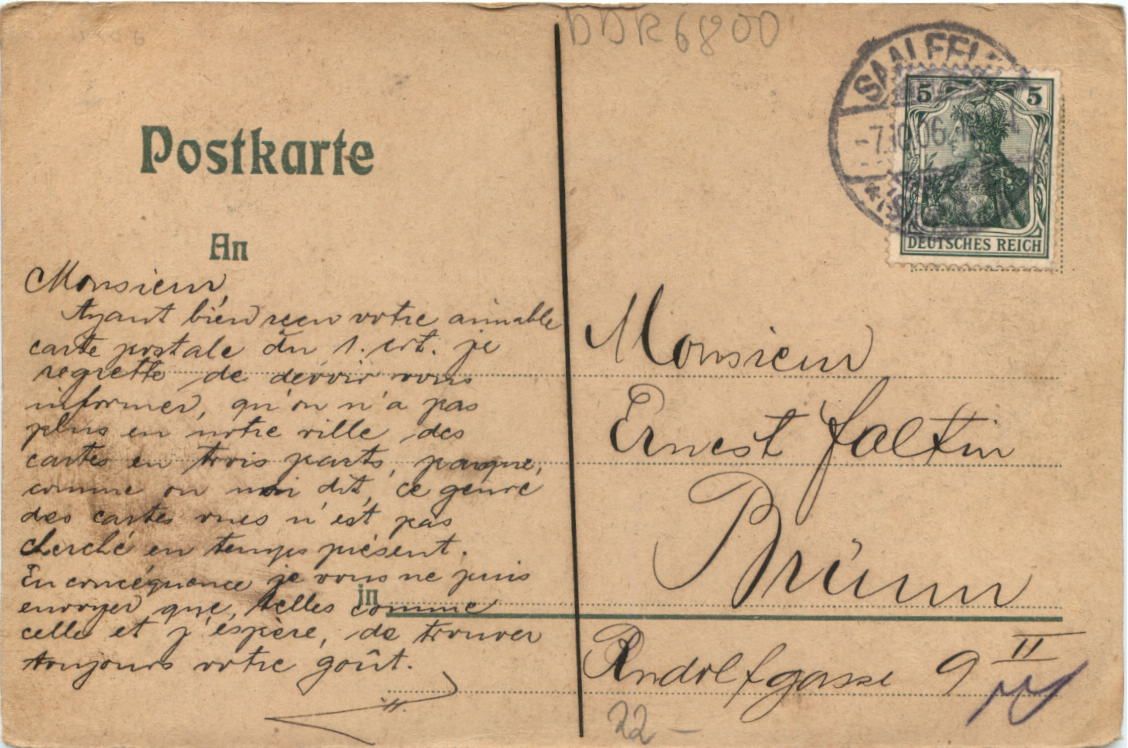 DDR 6800
SAALFEL
-7.10.06
5 5
DEUTSCHES REICH
Postkarte
An
Monsieur
Ayant bien reçu votre aimable
carte postale du 1. crt. je
regrette de devoir vous
informer, qu'on n'a pas
plus en notre ville des
cartes en trois parts, parque,
comme on m'a dit, ce genre
des cartes vues n'est pas
cherché en temps présent.
En concéquence je vous ne puis
envoyer que, telles comme
celle et j'éspère, de trouver
toujours votre goût.
Monsieur
Ernest Faltin
in Brünn
Rudolfgasse 9 II
22 -